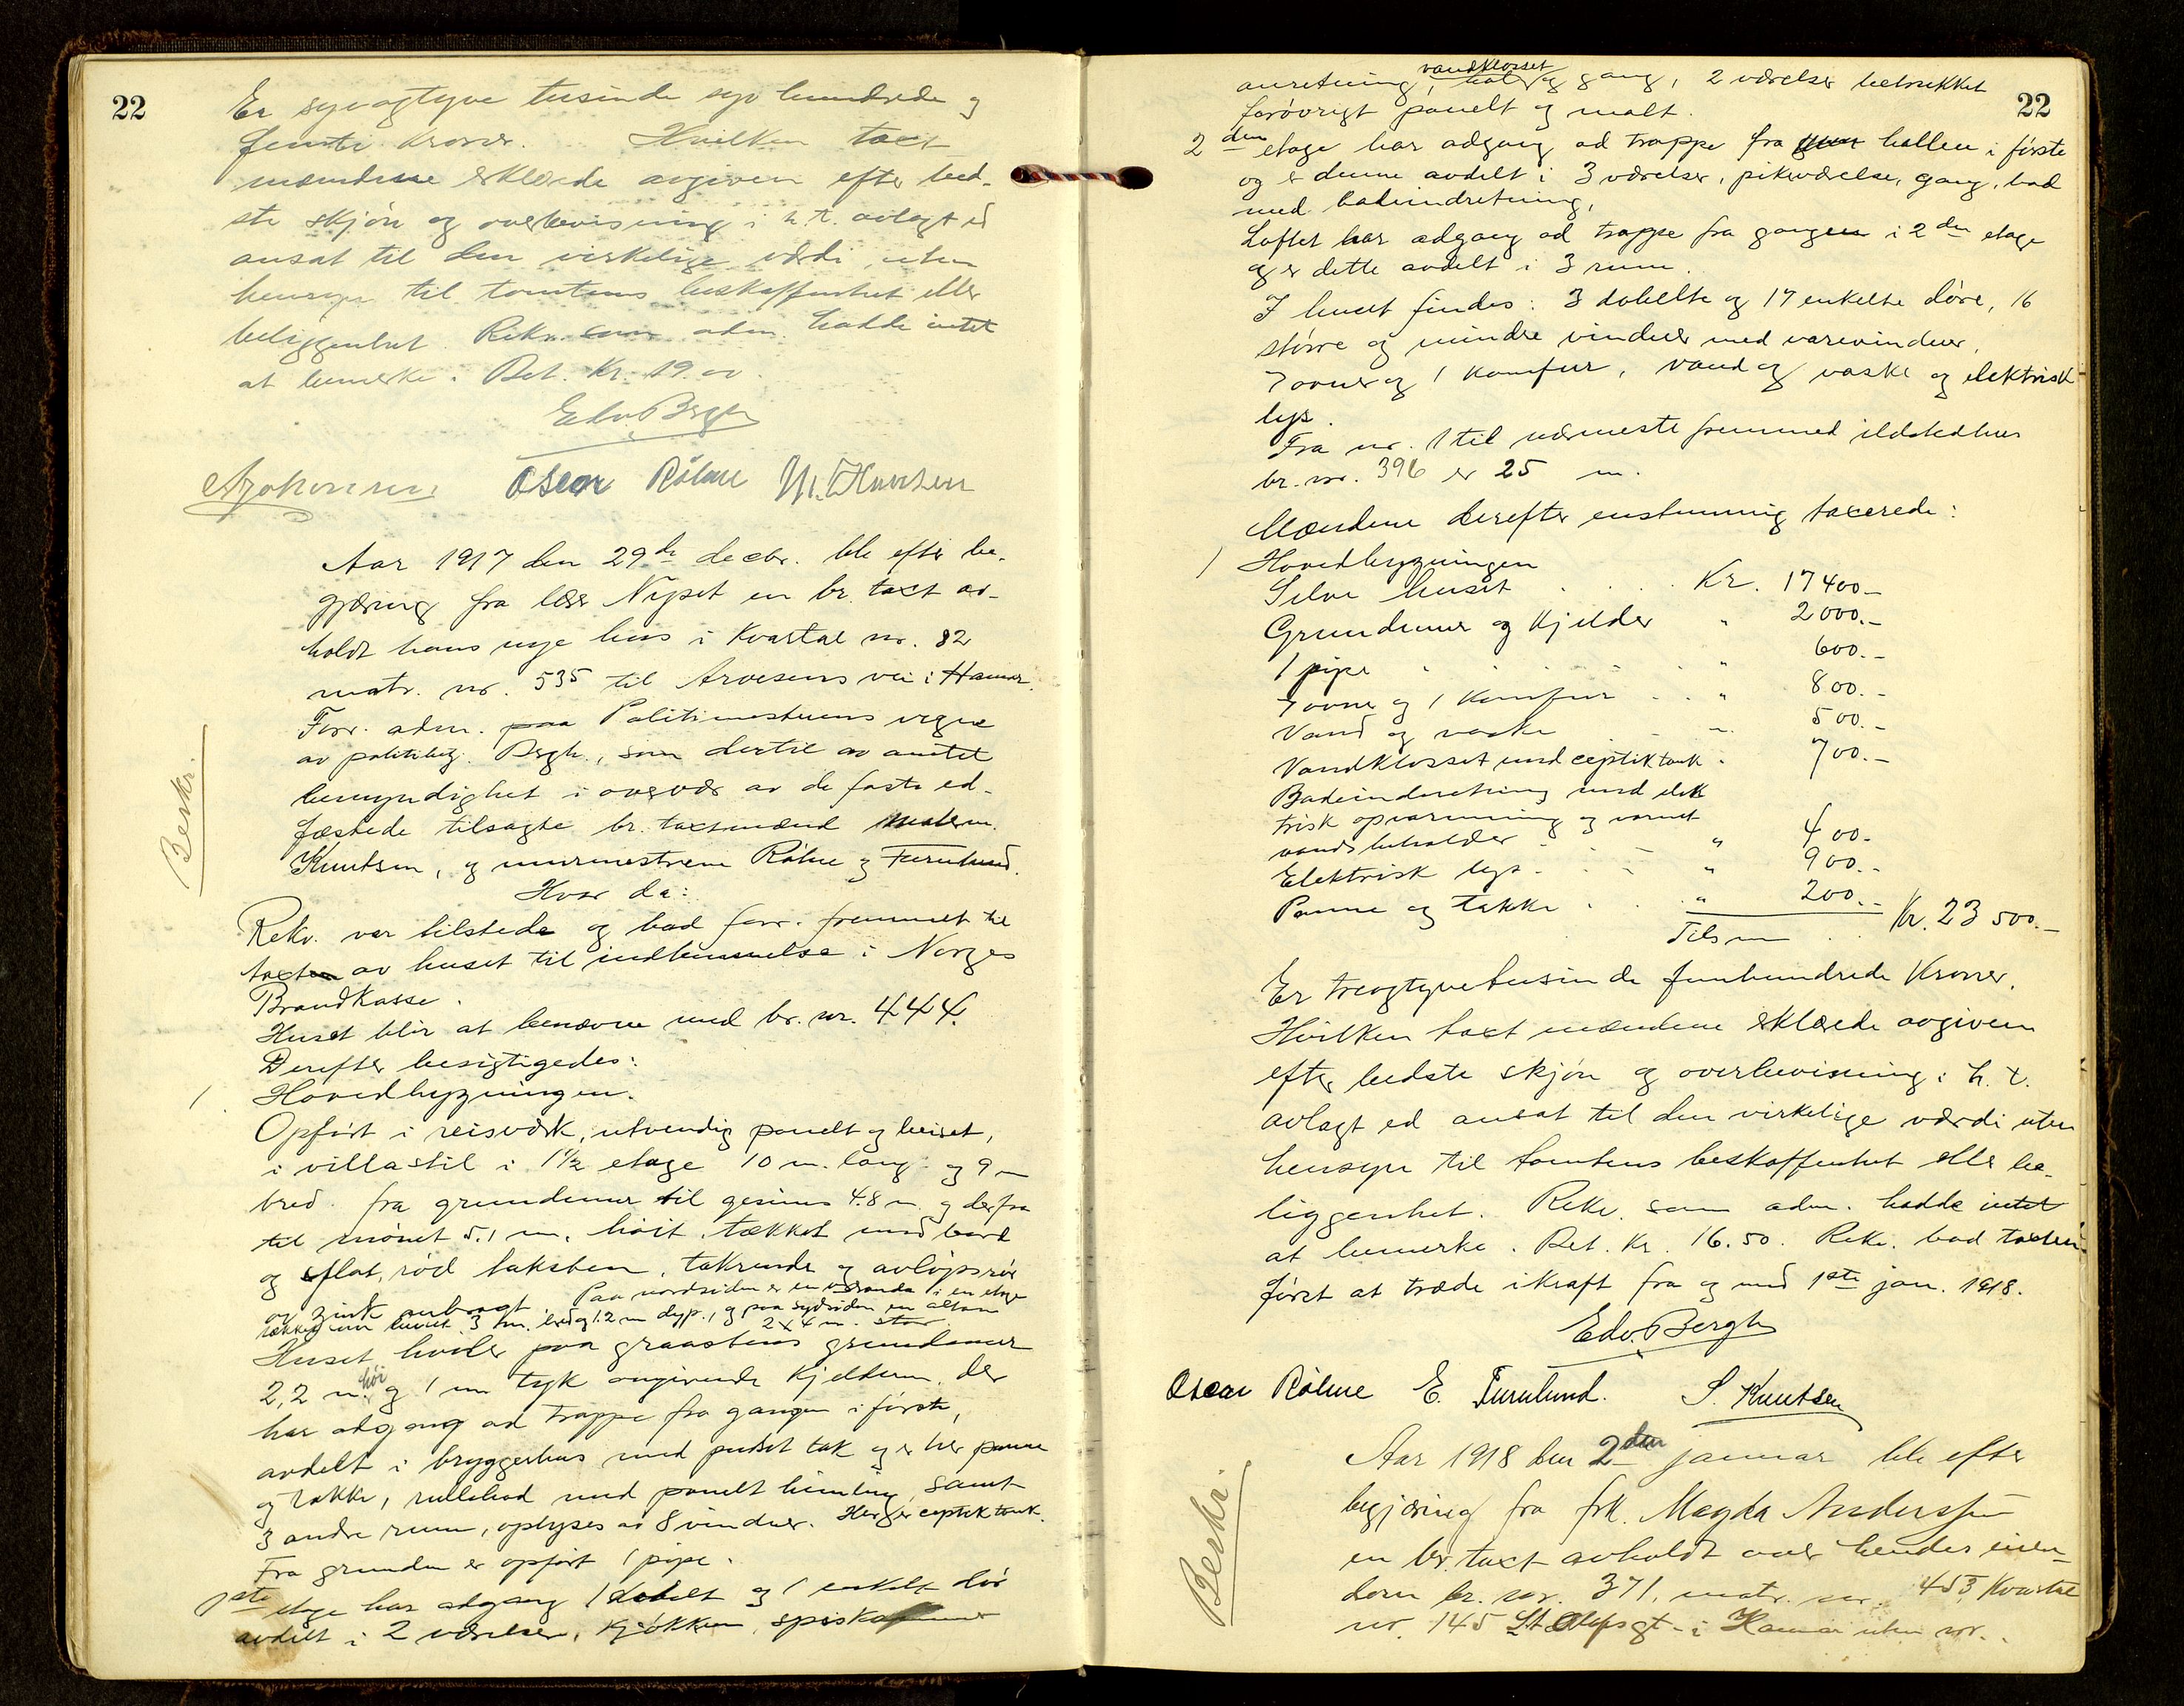 22
Er syvogtyve tusinde syv hundrede og
femti kroner. Hvilken taxt
mændene erklærede avgiven efter bed-
ste skjøn og overbevisning i h. t. avlagt ed
ansat til den virkelige værdi uten
hensyn til tomtens beskaffenhet eller
beliggenhet. Rekv. som adm. hadde intet
at bemerke. Bet. Kr. 19.00.
Edv. Bergh
Oscar Rölme M. Knutsen
Aar 1917 den 29de decbr. ble efter be-
gjæring fra lærer Nypset en br. taxt av-
holdt hans nye hus i Kvartal nr. 82
matr. nr. 535 til Arvesens vei i Hamar.
Forr. adm. paa Politimesterens vegne
av politibetj. Bergh, som dertil av amtet
bemyndighet i overvær av de faste ed-
fæstede tilsagte br. taxtmænd malerm.
Knutsen, og murmestrene Rølme og Furulund.
Hvor da:
Rekv. var tilstede og bad forr. fremmet til
taxten av huset til indlemmelse i Norges
Brandkasse.
Huset blir at benævne med br. nr. 444.
Derefter besigtigedes:
1. Hovedbygningen.
Opført i reisværk, utvendig panelt og beiset,
i villastil i 1½ etage 10 m. lang og 9 m
bred. fra grundmur til gesims 4.8 m. og derfra
til mønet 5.1 m. høit. tækket med bord
og flat, rød taksten, takrende og avløpsrør
av zink anbragt. Paa nordsiden er en veranda i en etage
tækket 3 m. bred og 1.2 m dyp., og paa sydsiden en altan
2 x 4 m. stor.
Huset hviler paa graastens grundmur
2,2 m. høi og 1 m tyk omgivende kjelderen, der
har adgang ad trappe fra gangen i første,
avdelt i bryggerhus med pudset tak og er her panne
og takke, rullebod med panelt himling, samt
3 andre rum, oplyses av 8 vinduer. Her er ceptiktank.
Fra grunden er opført 1 pipe.
1ste etage har adgang 1 dobelt og 1 enkelt dør
avdelt i 2 værelser, kjøkken, spiskammer
Beskr.
22
anretning, vandklosset hal og gang, 2 værelser betrukket
forøvrigt panelt og malt.
2den etage har adgang ad trappe fra hallen i første
og er denne avdelt i 3 værelser, pikeværelse, gang, bad
med badeindretning,
Loftet har adgang ad trappe fra gangen i 2den etage
og er dette avdelt i 3 rum.
I huset findes: 3 dobelte og 17 enkelte døre, 16
større og mindre vinduer med varevinduer,
7 ovner og 1 komfur, vand og vaske og elektrisk
lys.
Fra nr. 1 til nærmeste fremmed ildstedhus
br. nr. 396 er 25 m.
Mændene derefter enstemmig taxerede:
1 Hovedbygningen
Selve huset . . . Kr. 17400.-
Grundmur og kjelder " 2000.-
1 pipe . . . . " 600.-
7 ovner og 1 komfur . . " 800.-
Vand og vaske " 500.-
Vandklosset med ceptiktank " 700.-
Badeindretning med elek
trisk opvarmning og varmt
vandsbeholder . . " 400.-
Elektrisk lys . . . " 900.-
Panne og takke . . " 200.-
Tilsm . . Kr. 23500.-
Er treogtyvetusinde femhundrede Kroner.
Hvilken taxt mændene erklærede avgiven
efter bedste skjøn og overbevisning i h. t.
avlagt ed ansat til den virkelige værdi uten
hensyn til tomtens beskaffenhet eller be-
liggenhet. Rekv. som adm. hadde intet
at bemerke. Bet. Kr. 16.50. Rekv. bad taxten
først at træde i kraft fra og med 1ste jan. 1918.
Edv. Bergh
Oscar Rölme E. Furulund. S. Knutsen
Aar 1918 den 2den januar ble efter
begjæring fra frk. Magda Anderssen
en br. taxt avholdt over hendes eien-
dom br. nr. 371. matr. nr. 453 kvartal
nr. 145 St. Olafsgt. i Hamar uten nr.
Beskr.